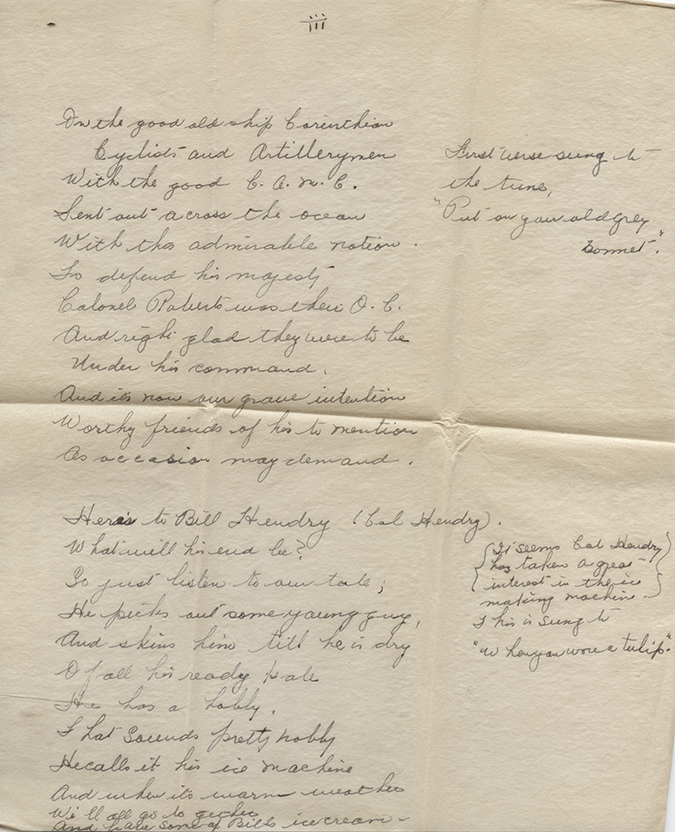 iii
On the good old ship Corinthian
Cyclists and Artillerymen
With the good C. A. M. C.
Sent out across the ocean
With this admirable notion.
To defend his majesty
Colonel Roberts was their O. C.
And right glad they were to be
Under his command.
And it's now our grave intention
Worthy friends of his to mention
As occasion may demand.
First verse sung to
the tune,
"Put on your old grey
bonnet."
Here's to Bill Hendry (Col Hendry).
What will his end be?
So just listen to our tale;
He picks out some young guy,
And skins him till he is dry
Of all his ready kale
He has a hobby,
That sounds pretty nobby
He calls it his ice machine
And when it's warm weather
We'll all go to gether
And have some of Bill's ice cream -
{It seems Col Hendry}
{has taken a great}
{interest in the ice}
making machine.
This is sung to
"When you wore a tulip."